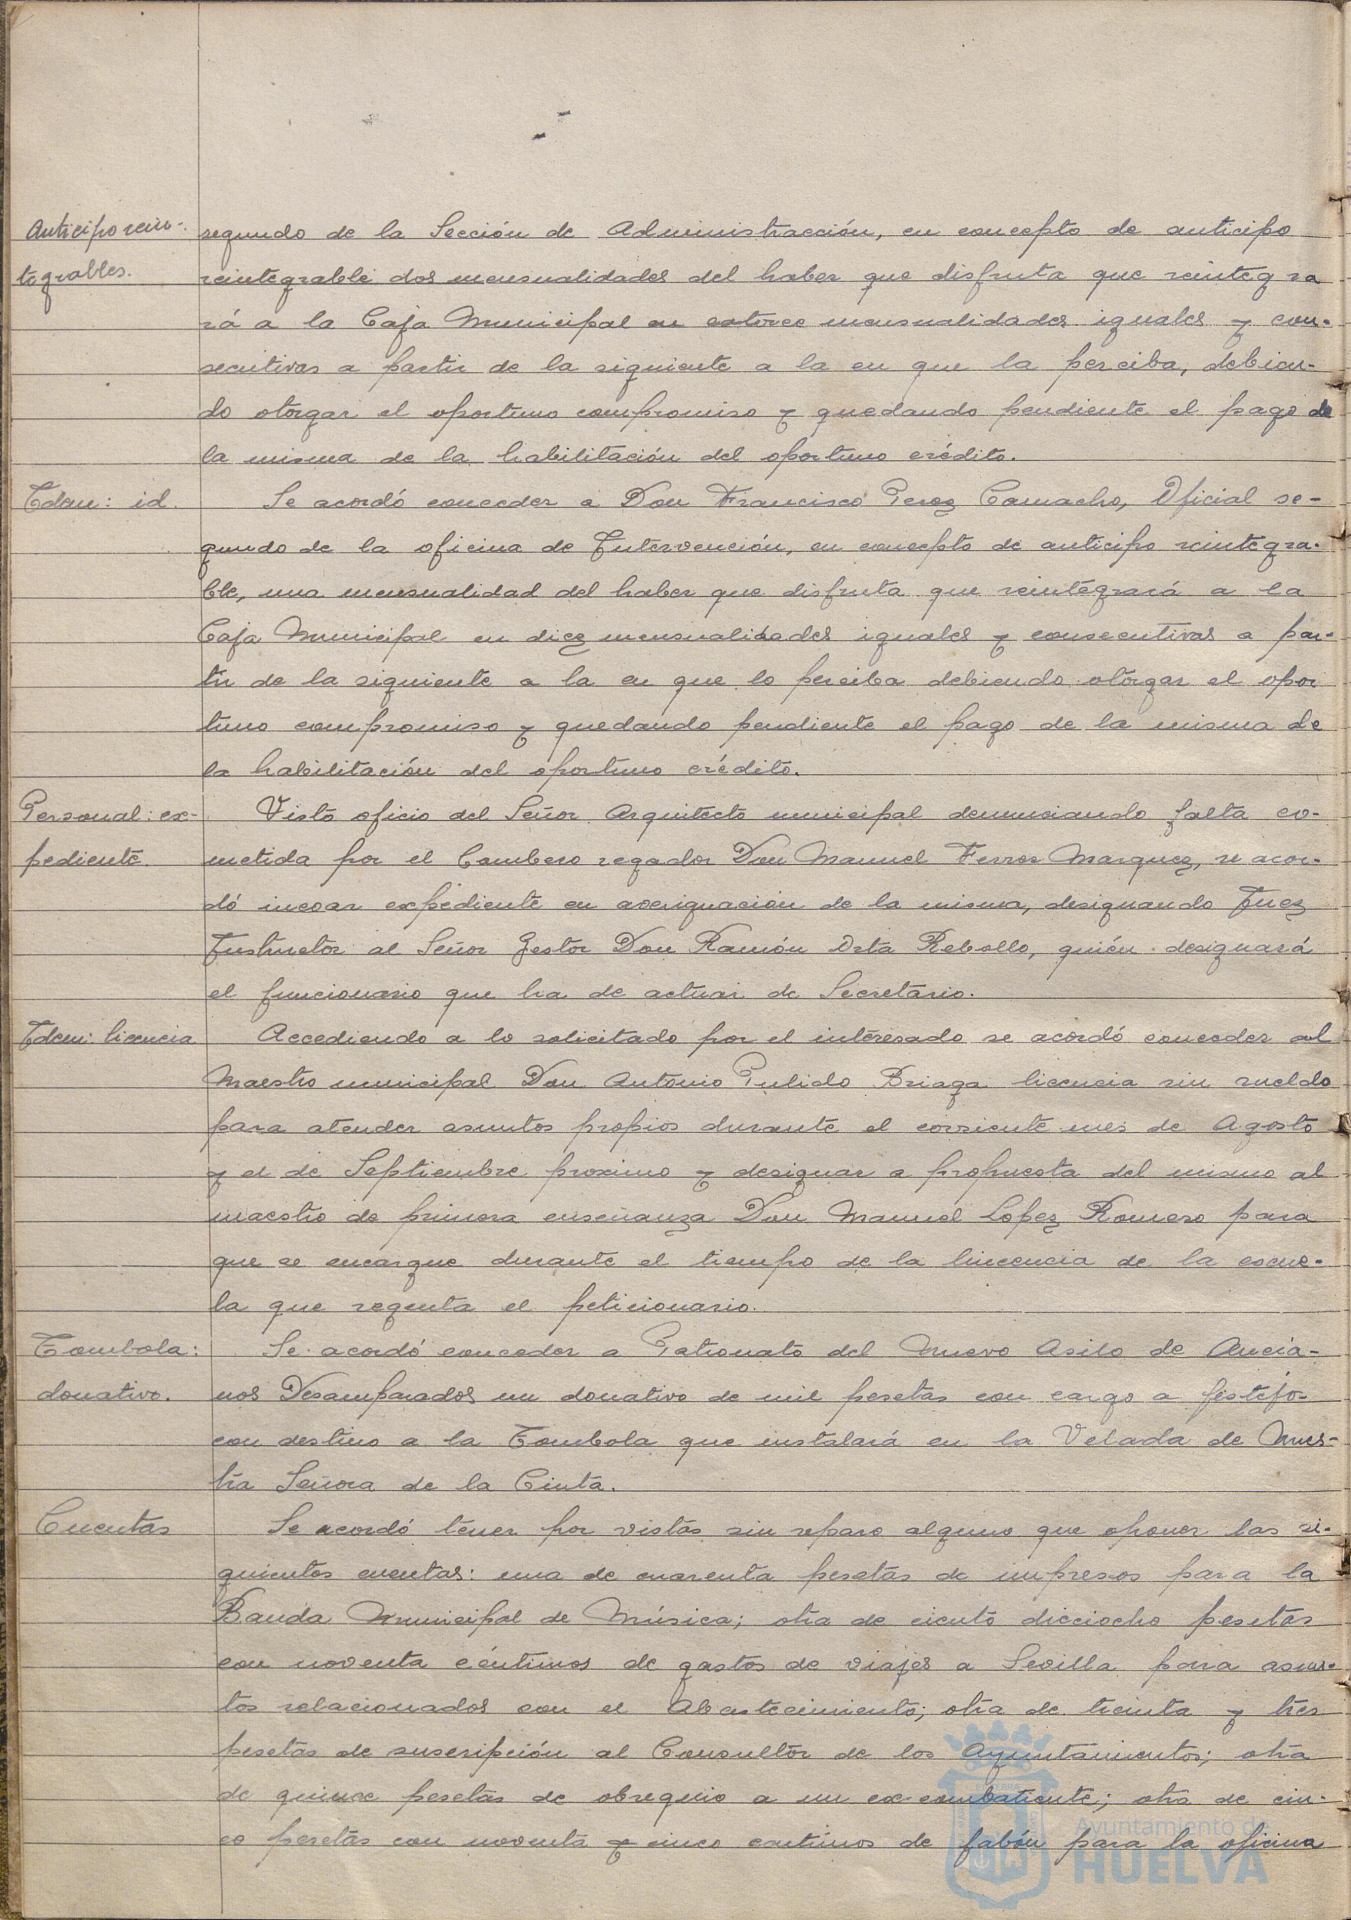 Anticipo rein-
tegrables.
segundo de la Sección de Administracción, en concepto de anticipo
reintegrable dos mensualidades del haber que disfruta que reintegra
rá a la Caja Municipal en catorce mensualidades iguales y con-
secutivas a partir de la siguiente a la en que la perciba, debien-
do otorgar el oportuno compromiso y quedando pendiente el pago de
la misma de la habilitación del oportuno crédito.
Idem: id.
Se acordó conceder a Don Francisco Perez Camacho, Oficial se-
gundo de la oficina de Intervención, en concepto de anticipo reintegra-
ble, una mensualidad del haber que disfruta que reintegrará a la
Caja Municipal en diez mensualidades iguales y consecutivas a par-
tir de la siguiente a la en que lo perciba debiendo otorgar el opor
tuno compromiso y quedando pendiente el pago de la misma de
la habilitación del oportuno crédito.
Personal: ex-
pediente.
Visto oficio del Señor Arquitecto municipal denunciando falta co-
metida por el bombero regador Don Manuel Ferrer Marquez, se acor-
dó incoar expediente en averiguación de la misma, designando Juez
Instructor al Señor Gestor Don Ramón Orta Rebollo, quién designará
el funcionario que ha de actuar de Secretario.
Idem: licencia
Accediendo a lo solicitado por el interesado se acordó conceder al
Maestro municipal Don Antonio Pulido Briaga licencia sin sueldo
para atender asuntos propios durante el corriente mes de Agosto
y el de Septiembre proximo y designar a propuesta del mismo al
maestro de primera enseñanza Don Manuel Lopez Romero para
que se encargue durante el tiempo de la lincencia de la escue-
la que regenta el peticionario.
Tombola:
donativo.
Se acordó conceder a Patronato del Nuevo Asilo de Ancia-
nos Desamparados un donativo de mil pesetas con cargo a festejos
con destino a la Tombola que instalará en la Velada de Nues-
tra Señora de la Cinta.
Cuentas
Se acordó tener por vistas sin reparo alguno que oponer las si-
guientes cuentas: una de cuarenta pesetas de impresos para la
Banda Municipal de Música; otra de ciento dieciocho pesetas
con noventa céntimos de gastos de viajes a Sevilla para asun-
tos relacionados con el Abastecimiento; otra de treinta y tres
pesetas de suscripción al Consultor de los Ayuntamientos; otra
de quince pesetas de obsequio a un ex-combatiente; otra de cin-
co pesetas con noventa y cinco centimos de jabón para la oficina
Ayuntamiento de
HUELVA